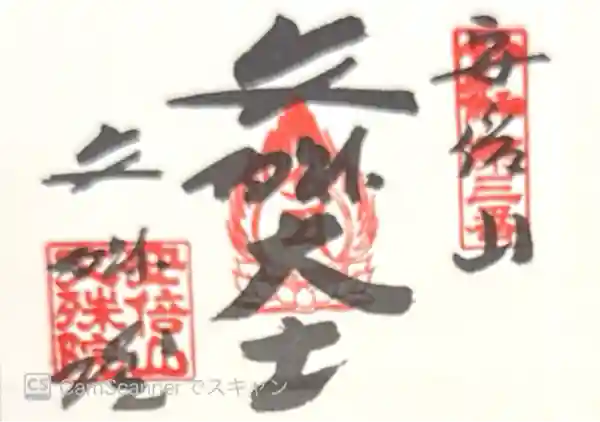 安倍山
三番
文殊大士
文殊院
安倍山
文殊院
CS CamScanner でスキャン